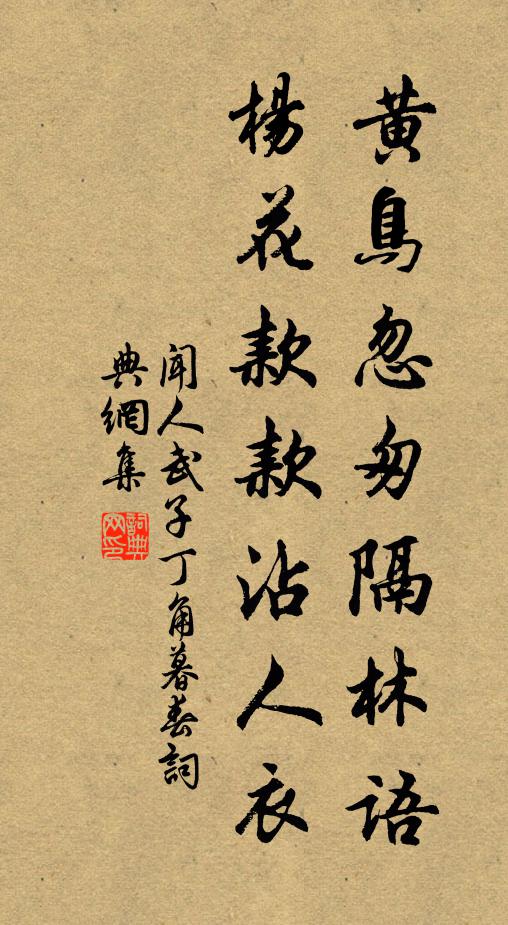 黃鳥忽匆隔林語
楊花款款沾人衣
聞人武子丁角暮春詞
典網集
詞典
网印